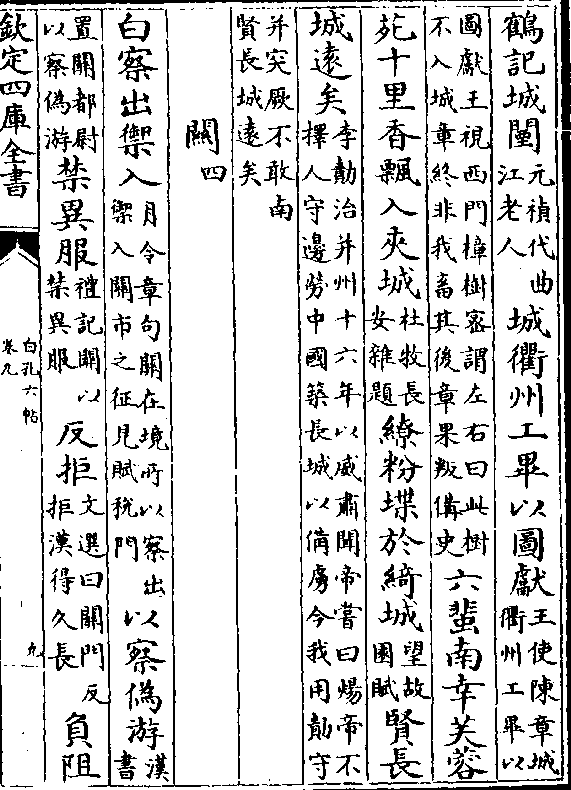 鶴記城闉元禎代曲江老人城衢州工畢以圖獻王使陳章城衢州工畢以
圖獻王視西門樟樹宻謂左右曰此樹不入城章終非我畜其後章果叛備史六蜚南幸芙蓉
苑十里香飄入夾城杜牧長安雜題繚粉堞於綺城望故園賦賢長
城遠矣李勣治并州十六年以威肅聞帝嘗曰煬帝不擇人守邊勞中國築長城以備虜今我用勣守
并突厥不敢南賢長城遠矣
關四
白察出禦入月令章句關在境所以察出禦入關市之征見賦稅門以察偽游漢書
置關都尉以察偽游禁異服禮記關以禁異服反拒文選曰關門反拒漢得久長負阻
欽定四庫全書
白孔六帖
卷九
九